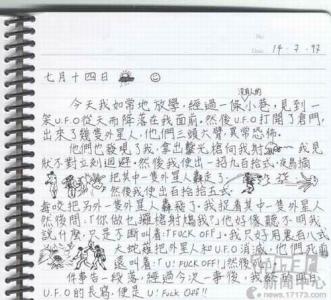 Date 14.7.97
七月十四日
今天我如常地放學,經過一條小巷,見到一
沒有人的
架U.F.O從天而降落在我面前,然後U.F.O打開了倉門,
出來了幾隻外星人,他們三頭六臂,異常恐怖。
他們也發現了我,拿出聲光槍向我射 我見
狀不對立刻迴避。然後我使出一招九百拾式
把其中一隻外星人轟走了
然後我使出百拾拾五式
每咬把另外一隻外星人轟飛了。我捉着其中一隻外星人
然後問:「你做乜攞槍射傷我?」他好像聽不明我
說什麼,只是不斷叫着「FUCK OFF」,我只好用裏百八式
大蛇薙把外星人和U.F.O消滅,他們我
還叫着「U!FUCK OFF!!」然後
件事告一段落,經過今次一事後,我終於明白
U.F.O的長寫,便是 U! FUCK OFF!!
新聞中心
news.17173.com